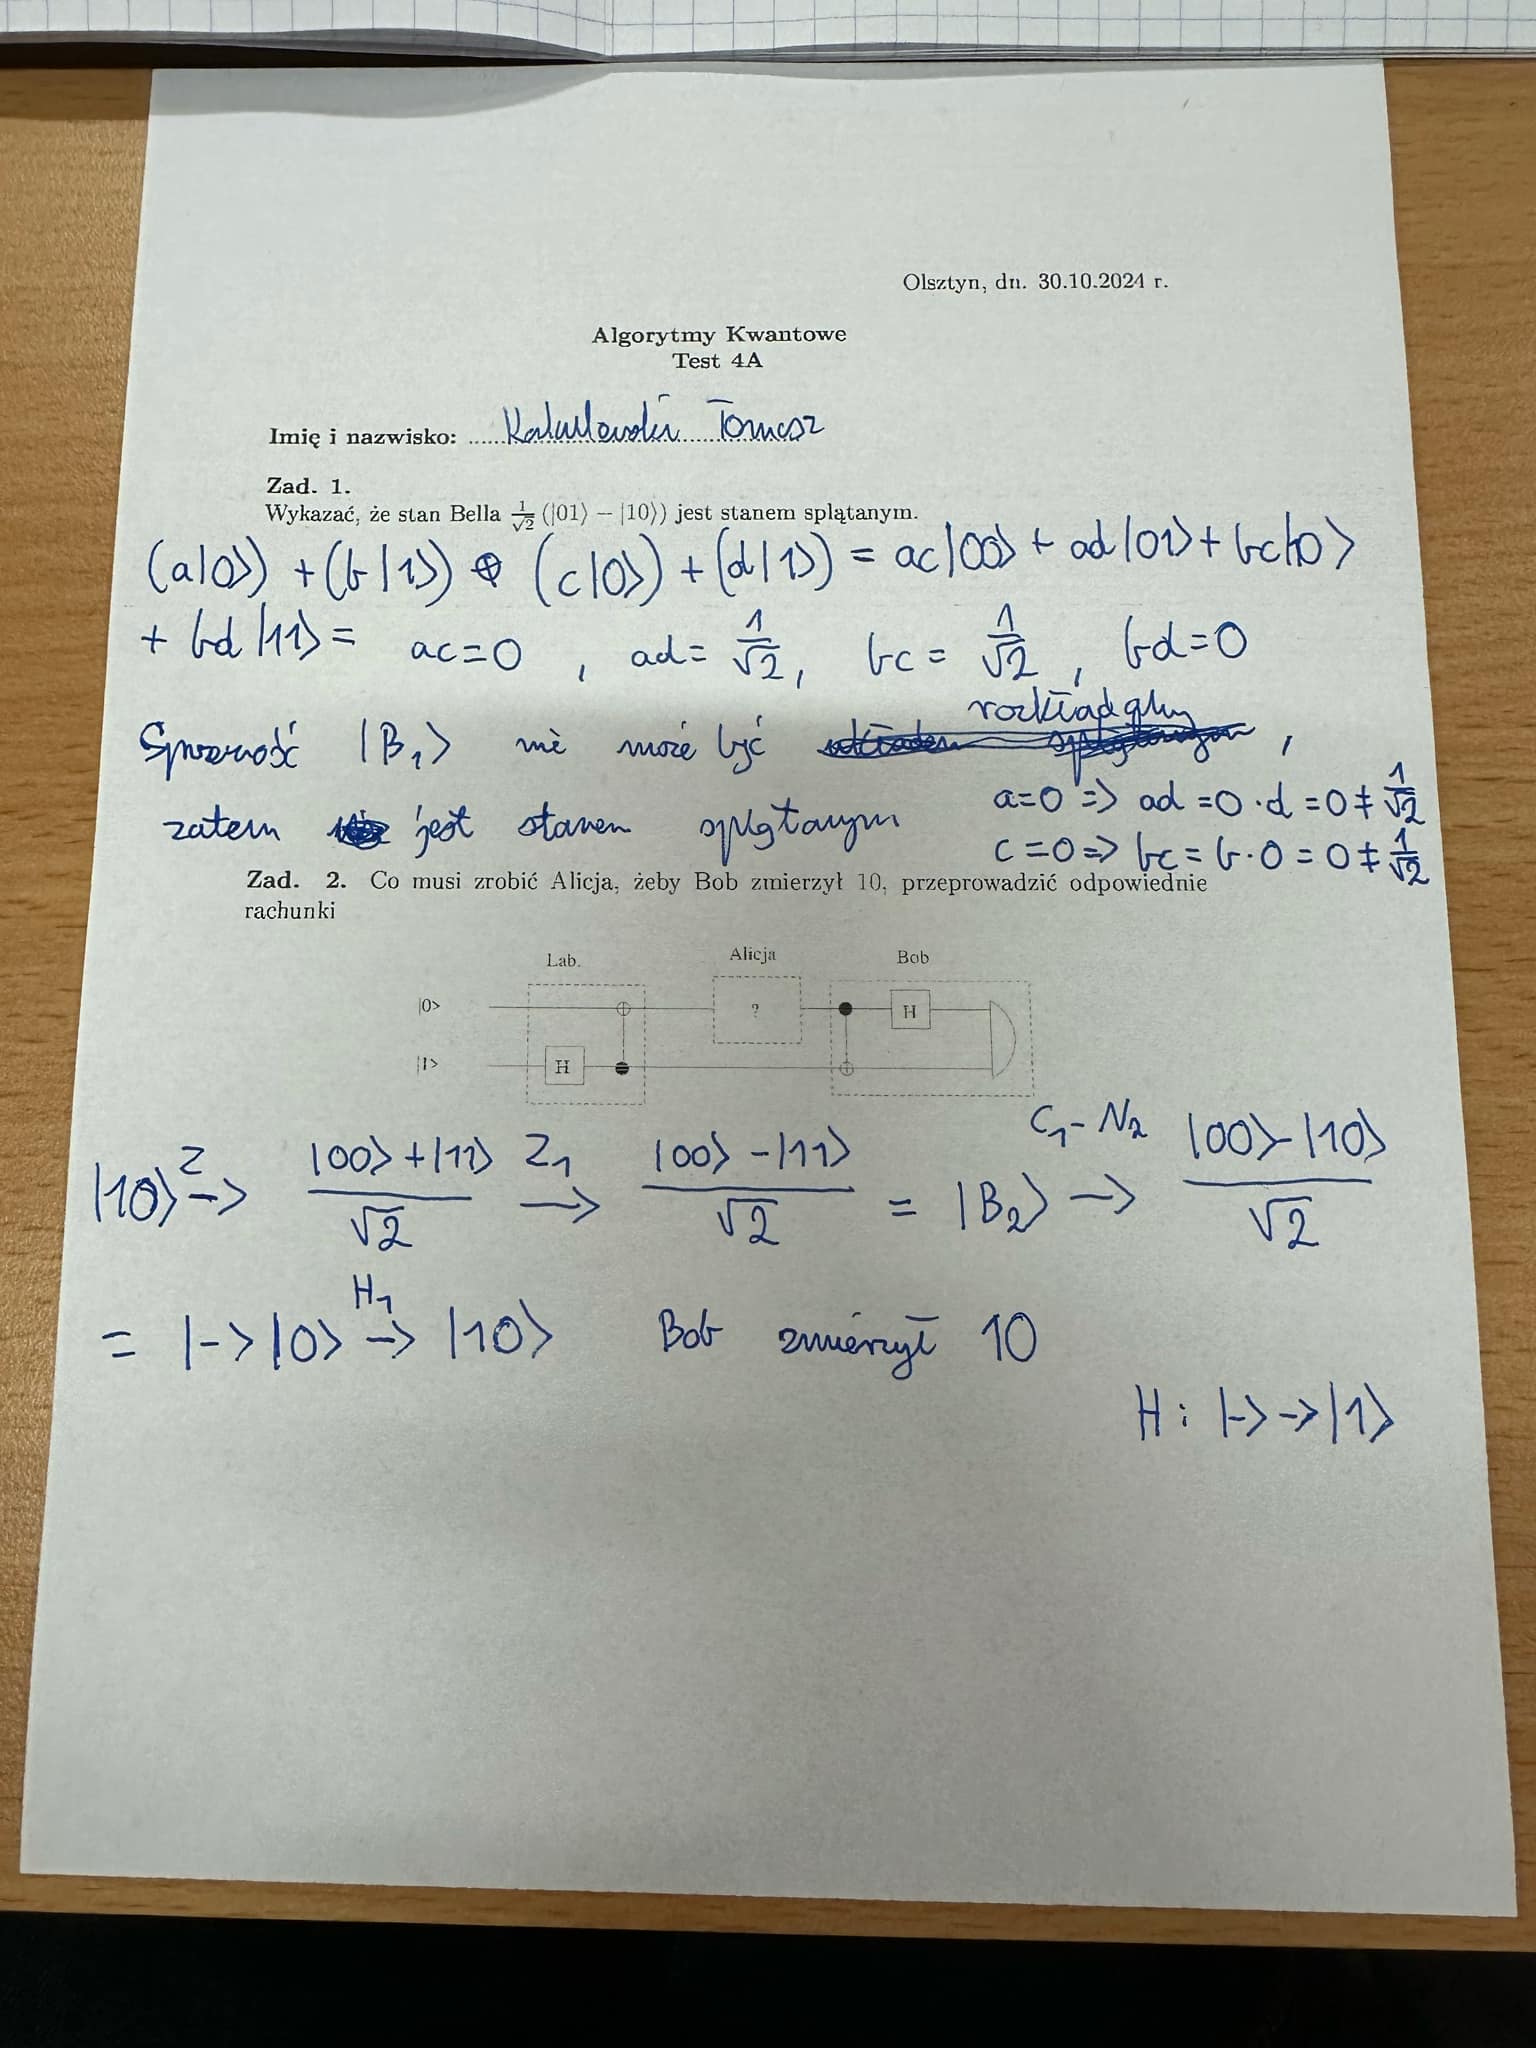 Olsztyn, dn. 30.10.2024 r.
Algorytmy Kwantowe
Test 4A
Imię i nazwisko: Tomasz
Zad. 1.
Wykazać, że stan Bella 1/√2 (|01⟩ − |10⟩) jest stanem splątanym.
(a|0⟩) + (b|1⟩) ⊕ (c|0⟩) + (d|1⟩) = ac|00⟩ + ad|01⟩ + bc|10⟩
+ bd|11⟩ = ac=0 , ad= 1/√2, bc = 1/√2 , bd=0
rozkładalny
|B₁⟩ nie może być ,
a=0 => ad =0·d =0≠ 1/√2
zatem jest stanem splątanym
c=0=> bc = b·0 = 0≠ 1/√2
Zad. 2. Co musi zrobić Alicja, żeby Bob zmierzył 10, przeprowadzić odpowiednie
rachunki
Lab. Alicja Bob
|0> ? H
|1> H
|10⟩ Z-> |00⟩+|11⟩/√2 Z₁-> |00⟩-|11⟩/√2 = |B₂⟩ C₁-N₂ -> |00⟩-|10⟩/√2
= |-⟩|0⟩ H₁-> |10⟩ Bob zmierzył 10
H: |-⟩->|1⟩